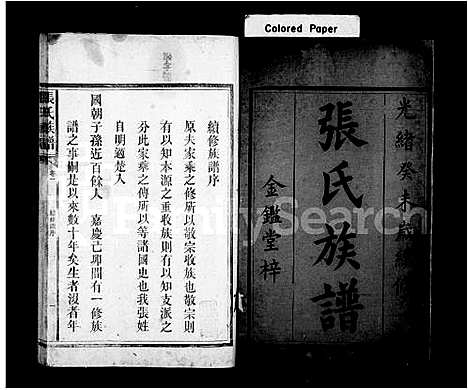 Colored Paper
光緒癸未歲
張氏族譜
金鑑堂梓
續修族譜序
原夫家乘之修所以敬宗收族也敬宗則
有以知本源之重收族則有以知支派之
分此家乘之傳所以等諸國史也我張姓
自明適楚人
國朝子孫近百餘人 嘉慶己卯間有一修族
譜之事嗣是以來數十年矣生者沒者年
張氏族譜
卷一
FamilySearch